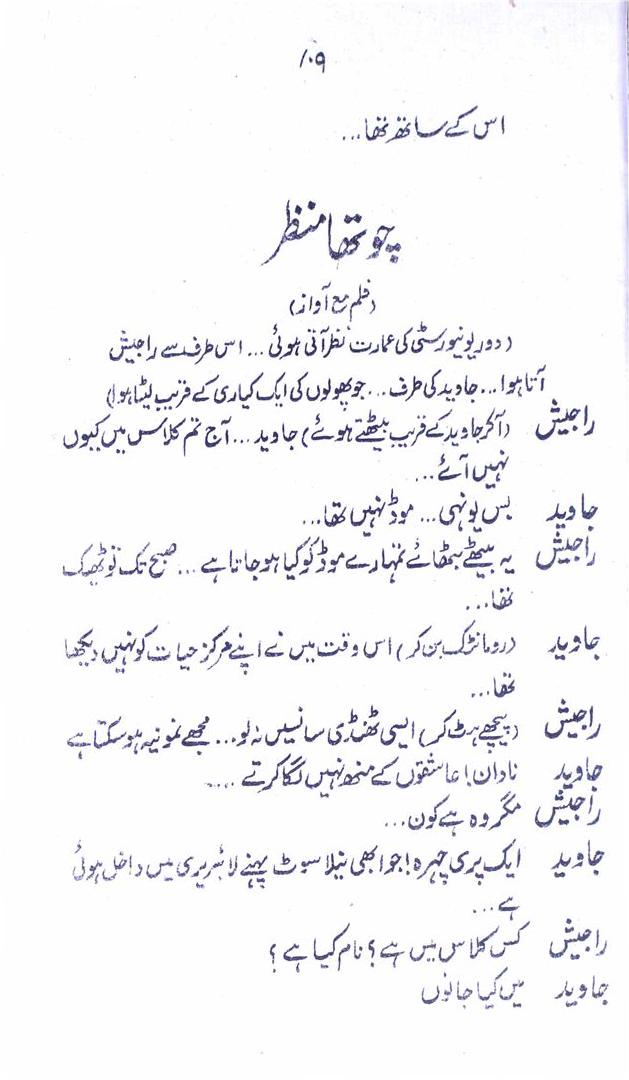 ۱۰۹
اس کے ساتھ تھا...
چوتھا منظر
(فلم مع آواز)
(دور یونیورسٹی کی عمارت نظر آتی ہوئی... اس طرف سے راجیش
آتا ہوا... جاوید کی طرف... جو پھولوں کی ایک کیاری کے قریب لیٹا ہوا)
راجیش (آکر جاوید کے قریب بیٹھتے ہوئے) جاوید... آج تم کلاس میں کیوں
نہیں آئے...
جاوید بس یونہی... موڈ نہیں تھا...
راجیش یہ بیٹھے بٹھائے تمہارے موڈ کو کیا ہو جاتا ہے... صبح تک تو ٹھیک
تھا...
جاوید (رومانٹک بن کر) اس وقت میں نے اپنے مرکز حیات کو نہیں دیکھا
تھا...
راجیش (پیچھے ہٹ کر) ایسی ٹھنڈی سانسیں نہ لو... مجھے نمونیہ ہو سکتا ہے
جاوید نادان! عاشقوں کے منھ نہیں لگا کرتے ....
راجیش مگر وہ ہے کون...
جاوید ایک پری چہرہ! جو ابھی نیلا سوٹ پہنے لائبریری میں داخل ہوئی
ہے...
راجیش کس کلاس میں ہے؟ نام کیا ہے؟
جاوید میں کیا جانوں